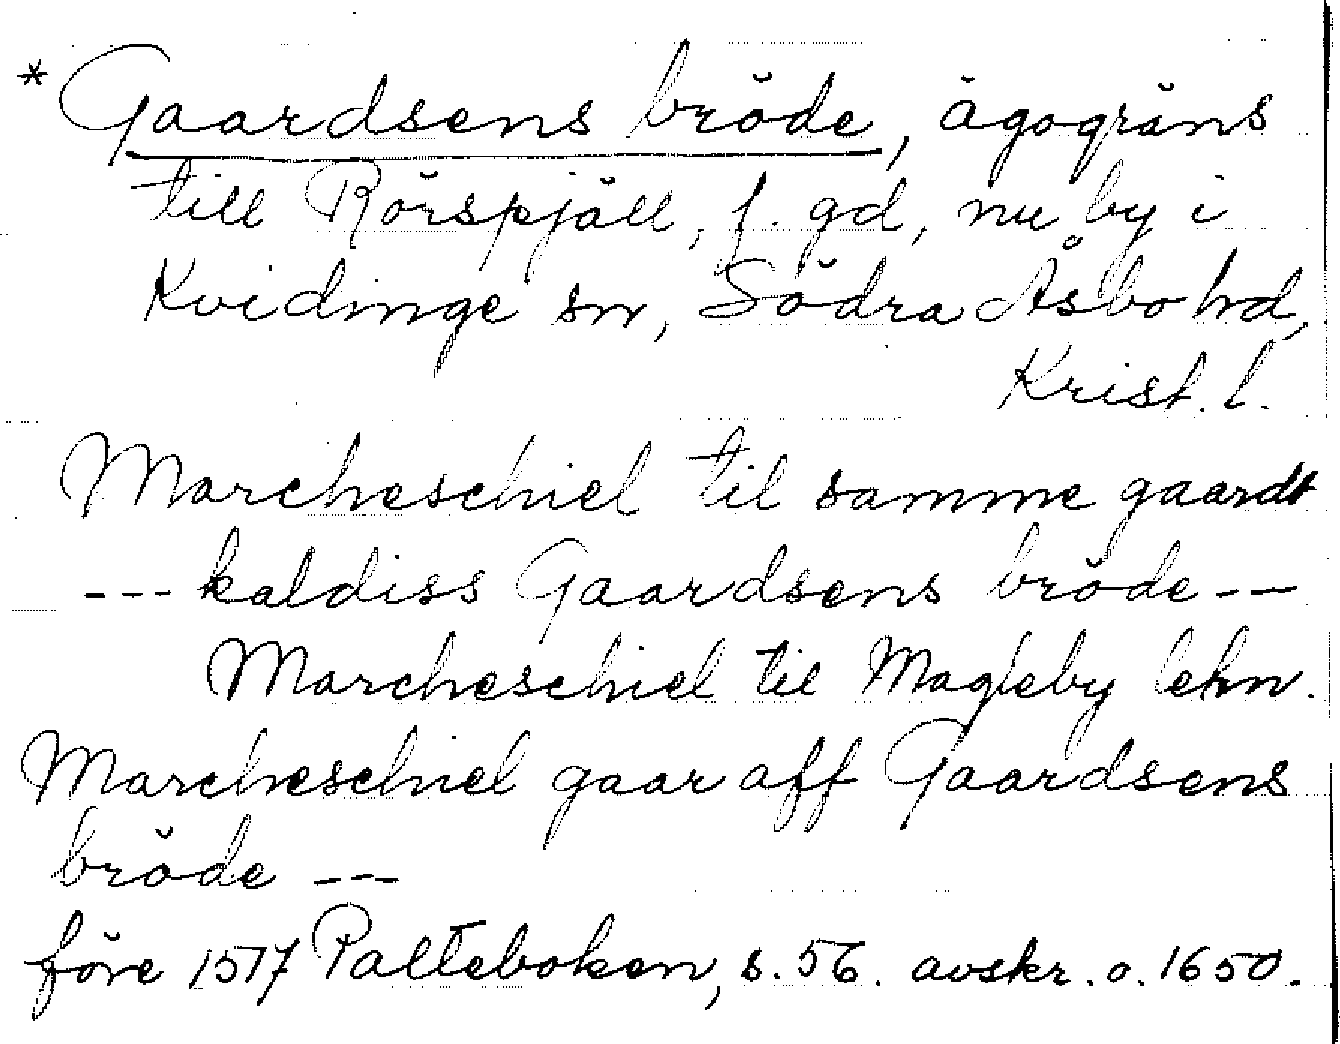 * Gaardsens bröde, ägogräns
till Rörspjäll, f. gd, nu by i
Kvidinge sn, Södra Åsbo hd,
Krist. l.
Marcheschiel til samme gaardt
--- kaldiss Gaardsens bröde ---
Marcheschiel til Magleby lehn.
Marcheschiel gaar aff Gaardsens
bröde ---
före 1517 Palteboken, s. 56. avskr. o. 1650.